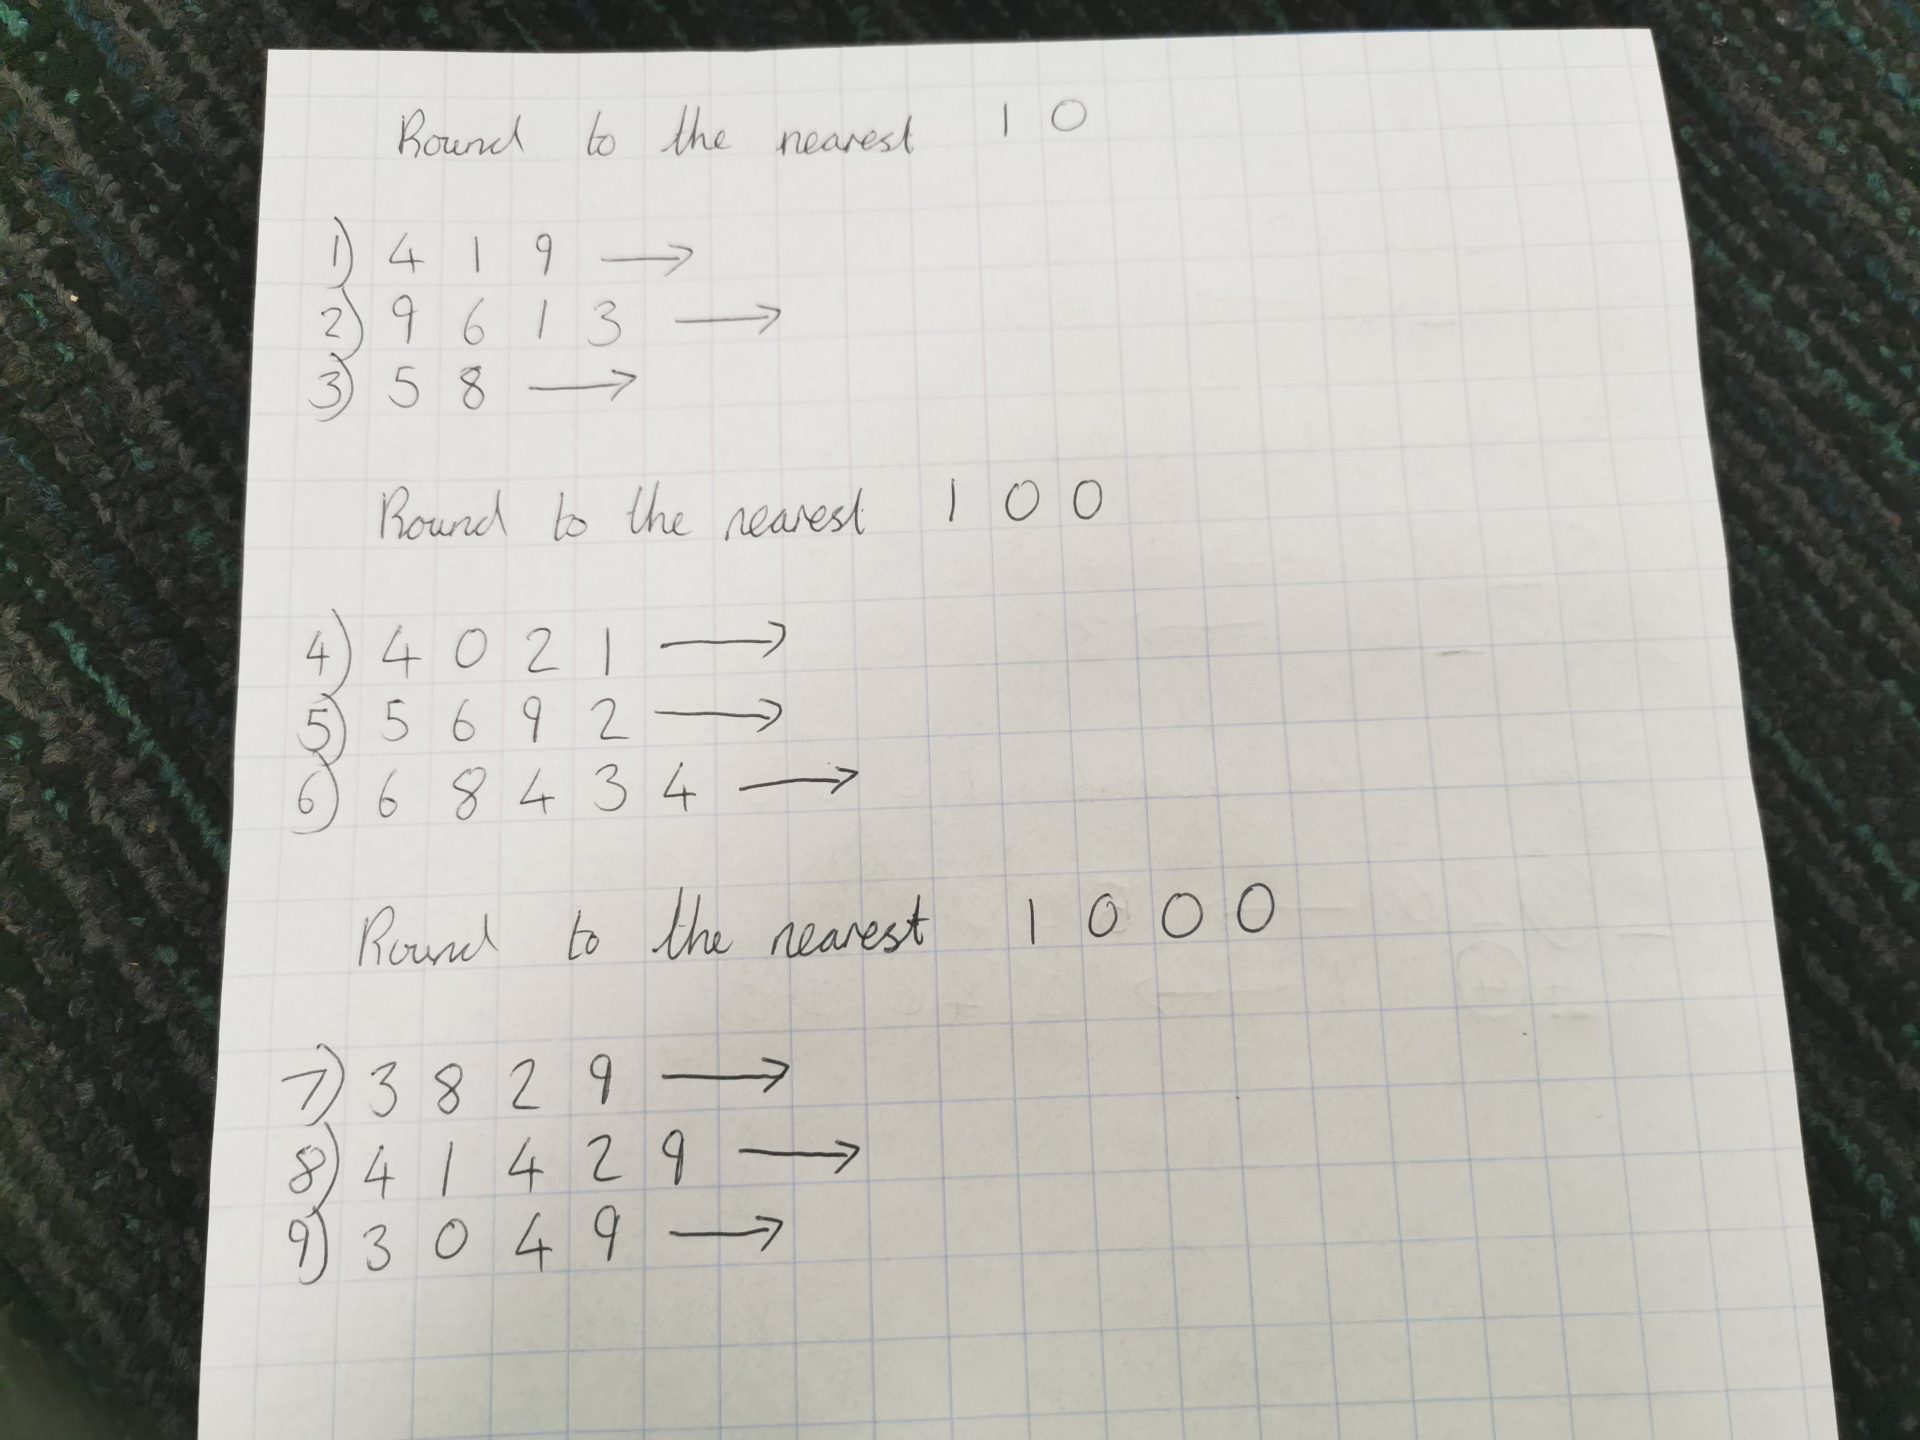 Round to the nearest 10
1) 419 →
2) 9613 →
3) 58 →
Round to the nearest 100
4) 4021 →
5) 5692 →
6) 68434 →
Round to the nearest 1000
7) 3829 →
8) 41429 →
9) 3049 →